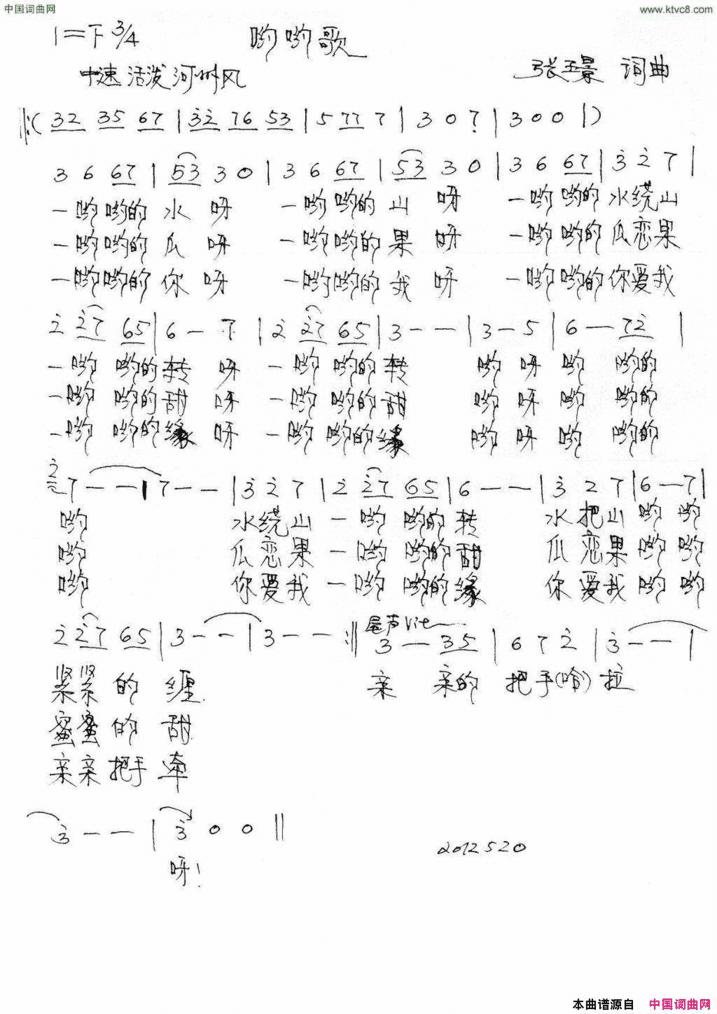 中国词曲网
www.ktvc8.com
1=下 3/4 哟哟歌
中速 活泼 河州风 张玉景 词曲
‖:( 32 35 67 | 32 76 53 | 5 77 7 | 3 0 7 | 3 0 0 | )
3 6 67 | 53 3 0 | 3 6 67 | 53 3 0 | 3 6 67 | 3 2 7 |
一哟哟的 水 呀 一哟哟的 山 呀 一哟哟的 水绕山
一哟哟的 瓜 呀 一哟哟的 果 呀 一哟哟的 瓜恋果
一哟哟的 你 呀 一哟哟的 我 呀 一哟哟的 你爱我
2 27 65 | 6 — 7 | 2 27 65 | 3 — — | 3 — 5 | 6 — 72 |
一哟 哟的 转 呀 一哟 哟的 转 哟 呀 哟 哟的
一哟 哟的 甜 呀 一哟 哟的 甜 哟 呀 哟 哟的
一哟 哟的 缘 呀 一哟 哟的 缘 哟 呀 哟 哟的
2 7 — — | 7 — — | 3 2 7 | 2 27 65 | 6 — — | 3 2 7 | 6 — 7 |
哟 水绕山 一哟 哟的 转 水把山 哟 哟
哟 瓜恋果 一哟 哟的 甜 瓜恋果 哟 哟
哟 你爱我 一哟 哟的 缘 你爱我 哟 哟
2 27 65 | 3 — — | 3 — — :‖ 尾声 3 — 35 | 6 7 2 | 3 — — |
紧紧 的 缠 亲 亲的 把手(哈) 拉
蜜蜜 的 甜
亲亲 把手 牵
3 — — | 3 0 0 ‖
呀!
2012520
本曲谱源自 中国词曲网